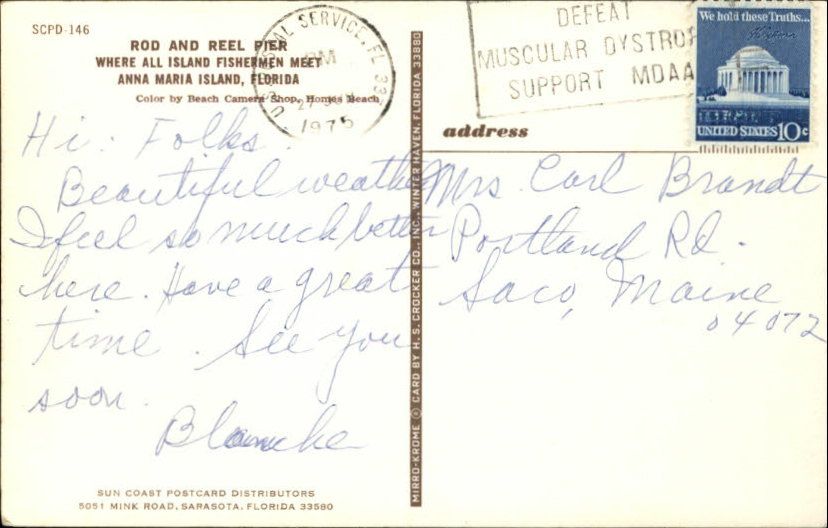 SCPD-146
ROD AND REEL PIER
WHERE ALL ISLAND FISHERMEN MEET
ANNA MARIA ISLAND, FLORIDA
Color by Beach Camera Shop, Homes Beach
Hi Folks.
Beautiful weather
I feel so much better
here. Have a great
time. See you
soon.
Blanche
SUN COAST POSTCARD DISTRIBUTORS
5051 MINK ROAD, SARASOTA, FLORIDA 33580
MIRRO-KROME © CARD BY H. S. CROCKER CO., INC., WINTER HAVEN, FLORIDA 33880
SERVICE, FL
PM
1975
DEFEAT
MUSCULAR DYSTRO
SUPPORT MDAA
We hold these Truths...
UNITED STATES 10c
address
Mrs. Carl Brandt
Portland Rd.
Saco, Maine
04072